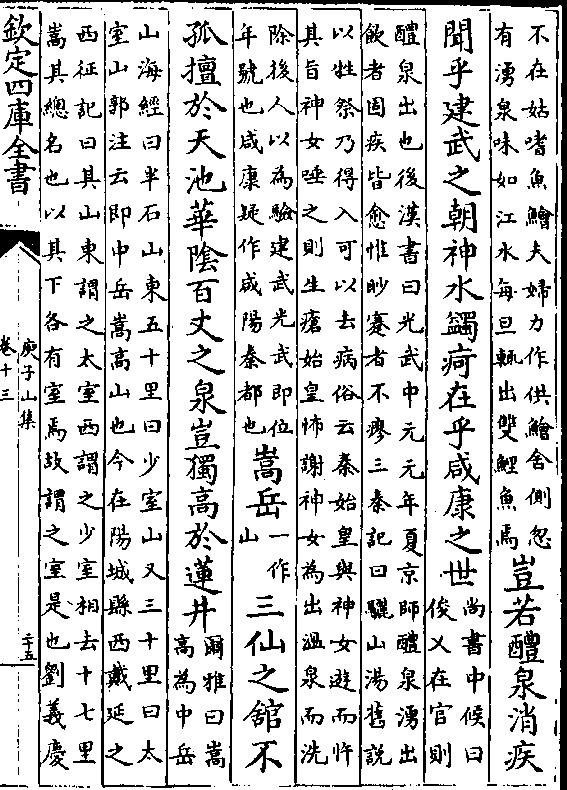 不在姑嗜魚鱠夫婦力作供鱠舍側忽
有湧泉味如江水每旦輒出雙鯉魚焉
豈若醴泉消疾
聞乎建武之朝神水蠲疴在乎咸康之世
尚書中候曰
俊乂在官則
醴泉出也後漢書曰光武中元元年夏京師醴泉湧出
飲者固疾皆愈惟眇蹇者不瘳三秦記曰驪山湯舊說
以牲祭乃得入可以去病俗云秦始皇與神女遊而忤
其旨神女唾之則生瘡始皇怖謝神女為出溫泉而洗
除後人以為驗建武光武即位
年號也咸康疑作咸陽秦都也
嵩岳
一作
山
三仙之舘不
孤擅於天池華陰百丈之泉豈獨高於蓮井
爾雅曰嵩
高為中岳
山海經曰半石山東五十里曰少室山又三十里曰太
室山郭注云即中岳嵩高山也今在陽城縣西戴延之
西征記曰其山東謂之太室西謂之少室相去十七里
嵩其總名也以其下各有室焉故謂之室是也劉義慶
欽定四庫全書
庾子山集
卷十三
二十五